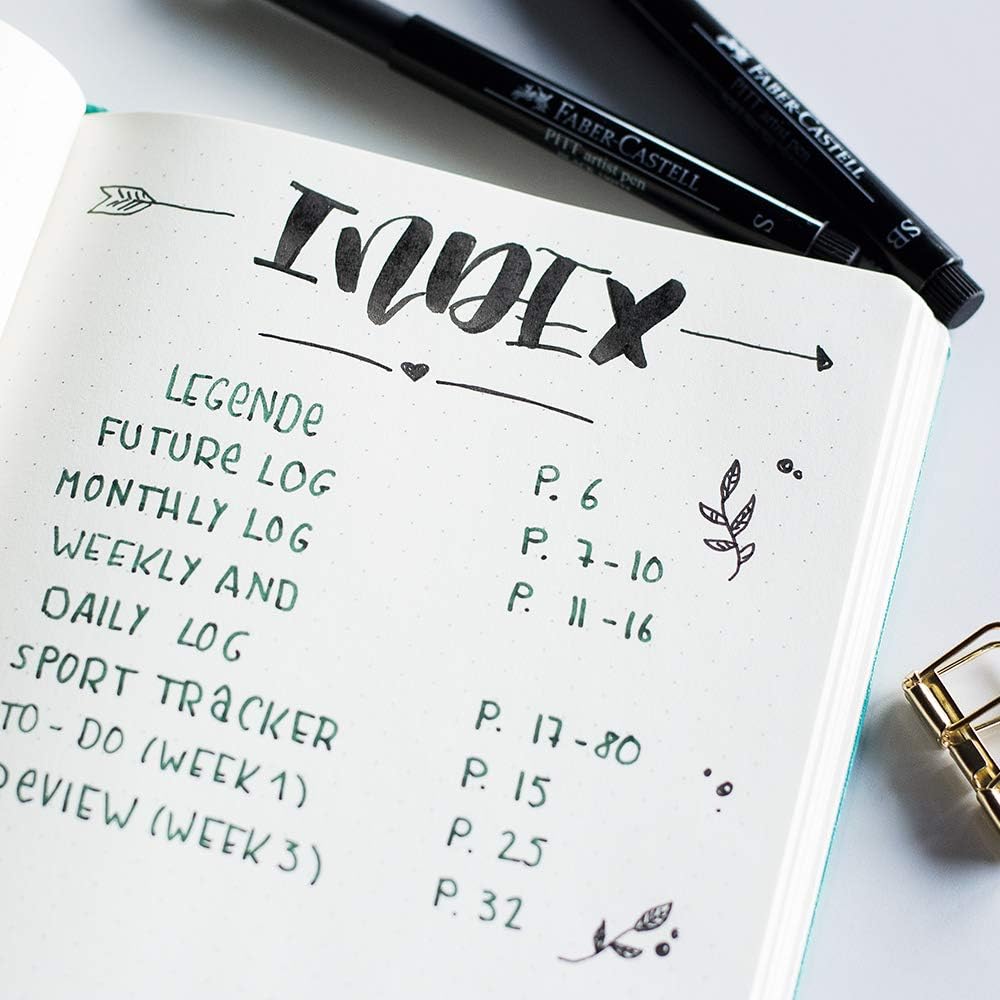 FABER-CASTELL
PITT artist pen
S
FABER-CASTELL
PITT artist pen
SB
INDEX
LEGENDE P. 6
FUTURE LOG P. 7-10
MONTHLY LOG P. 11-16
WEEKLY AND
DAILY LOG P. 17-80
SPORT TRACKER P. 15
TO-DO (WEEK 1) P. 25
REVIEW (WEEK 3) P. 32